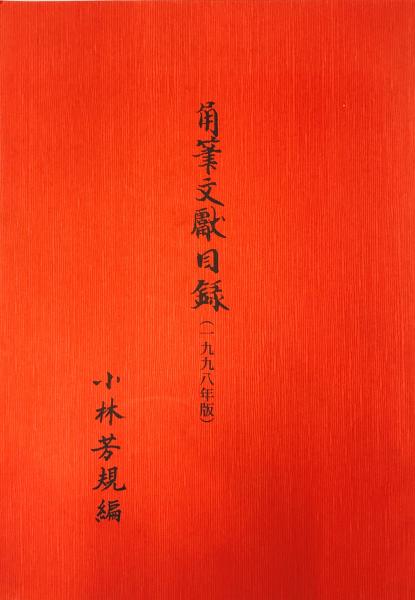 角筆文獻目録(一九九八年版)
小林芳規編